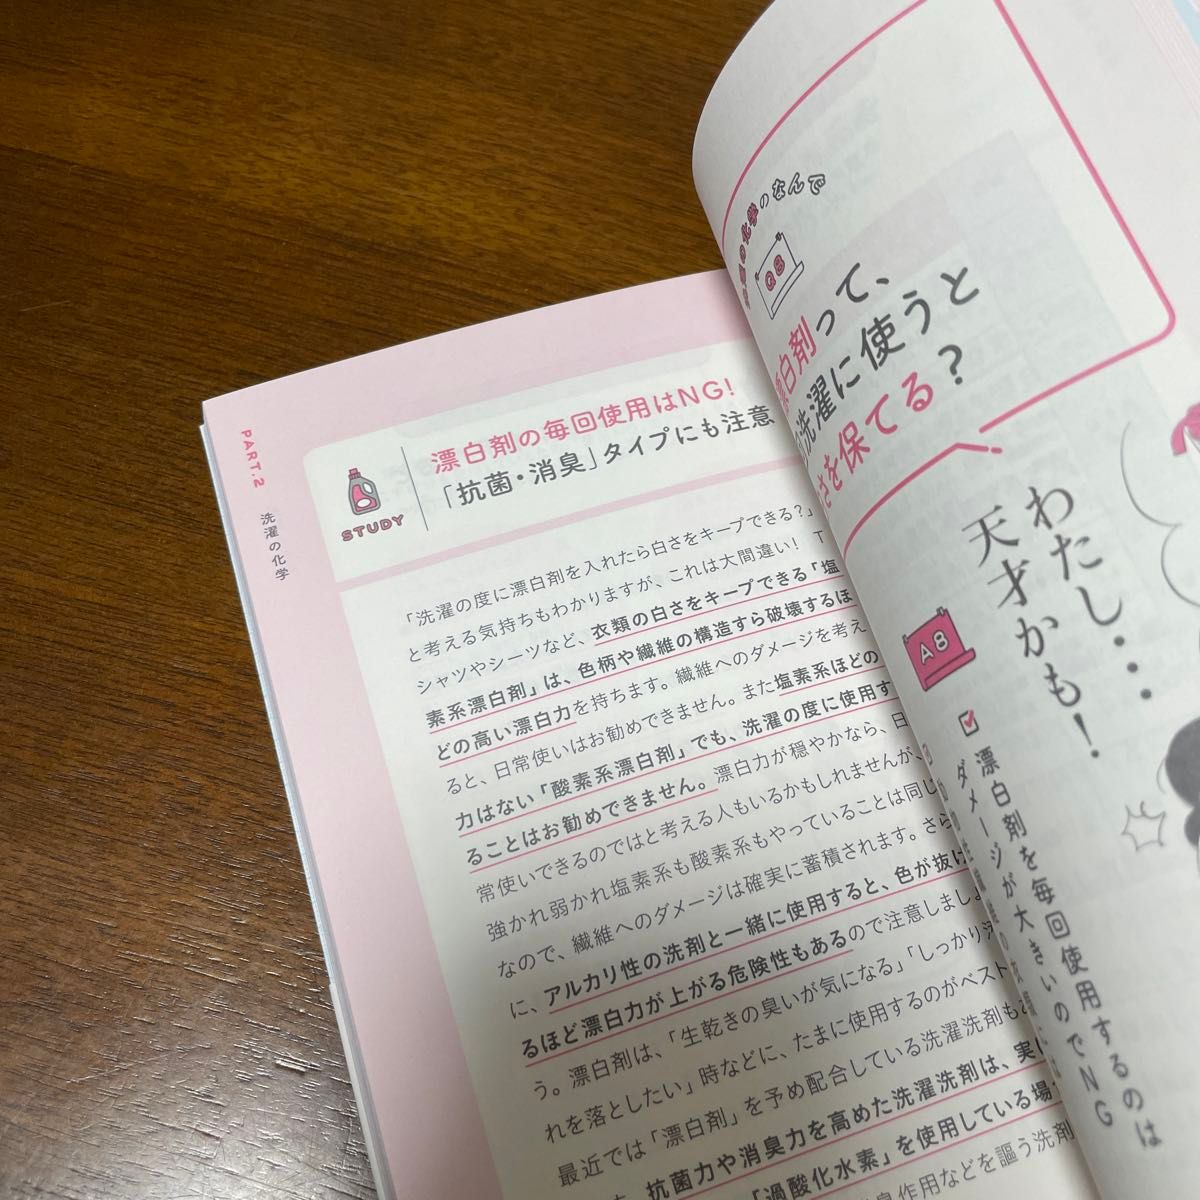 PART.2 洗濯の化学
STUDY
漂白剤の毎回使用はNG!
「抗菌・消臭」タイプにも注意
「洗濯の度に漂白剤を入れたら白さをキープできる?」
と考える気持ちもわかりますが、これは大間違い! T
シャツやシーツなど、衣類の白さをキープできる「塩
素系漂白剤」は、色柄や繊維の構造すら破壊するほ
どの高い漂白力を持ちます。繊維へのダメージを考え
ると、日常使いはお勧めできません。また塩素系ほどの
力はない「酸素系漂白剤」でも、洗濯の度に使用す
ることはお勧めできません。漂白力が穏やかなら、日
常使いできるのではと考える人もいるかもしれませんが、
強かれ弱かれ塩素系も酸素系もやっていることは同じ
なので、繊維へのダメージは確実に蓄積されます。さら
に、アルカリ性の洗剤と一緒に使用すると、色が抜け
るほど漂白力が上がる危険性もあるので注意しましょ
う。漂白剤は、「生乾きの臭いが気になる」「しっかり汚
れを落としたい」時などに、たまに使用するのがベスト
最近では「漂白剤」を予め配合している洗濯洗剤も
抗菌力や消臭力を高めた洗濯洗剤は、実は
「過酸化水素」を使用している場
臭作用などを謳う洗剤
の化学のなんで
Q8
白剤って、
洗濯に使うと
さを保てる?
わたし・・・
天才かも!
A8
漂白剤を毎回使用するのは
ダメージが大きいのでNG